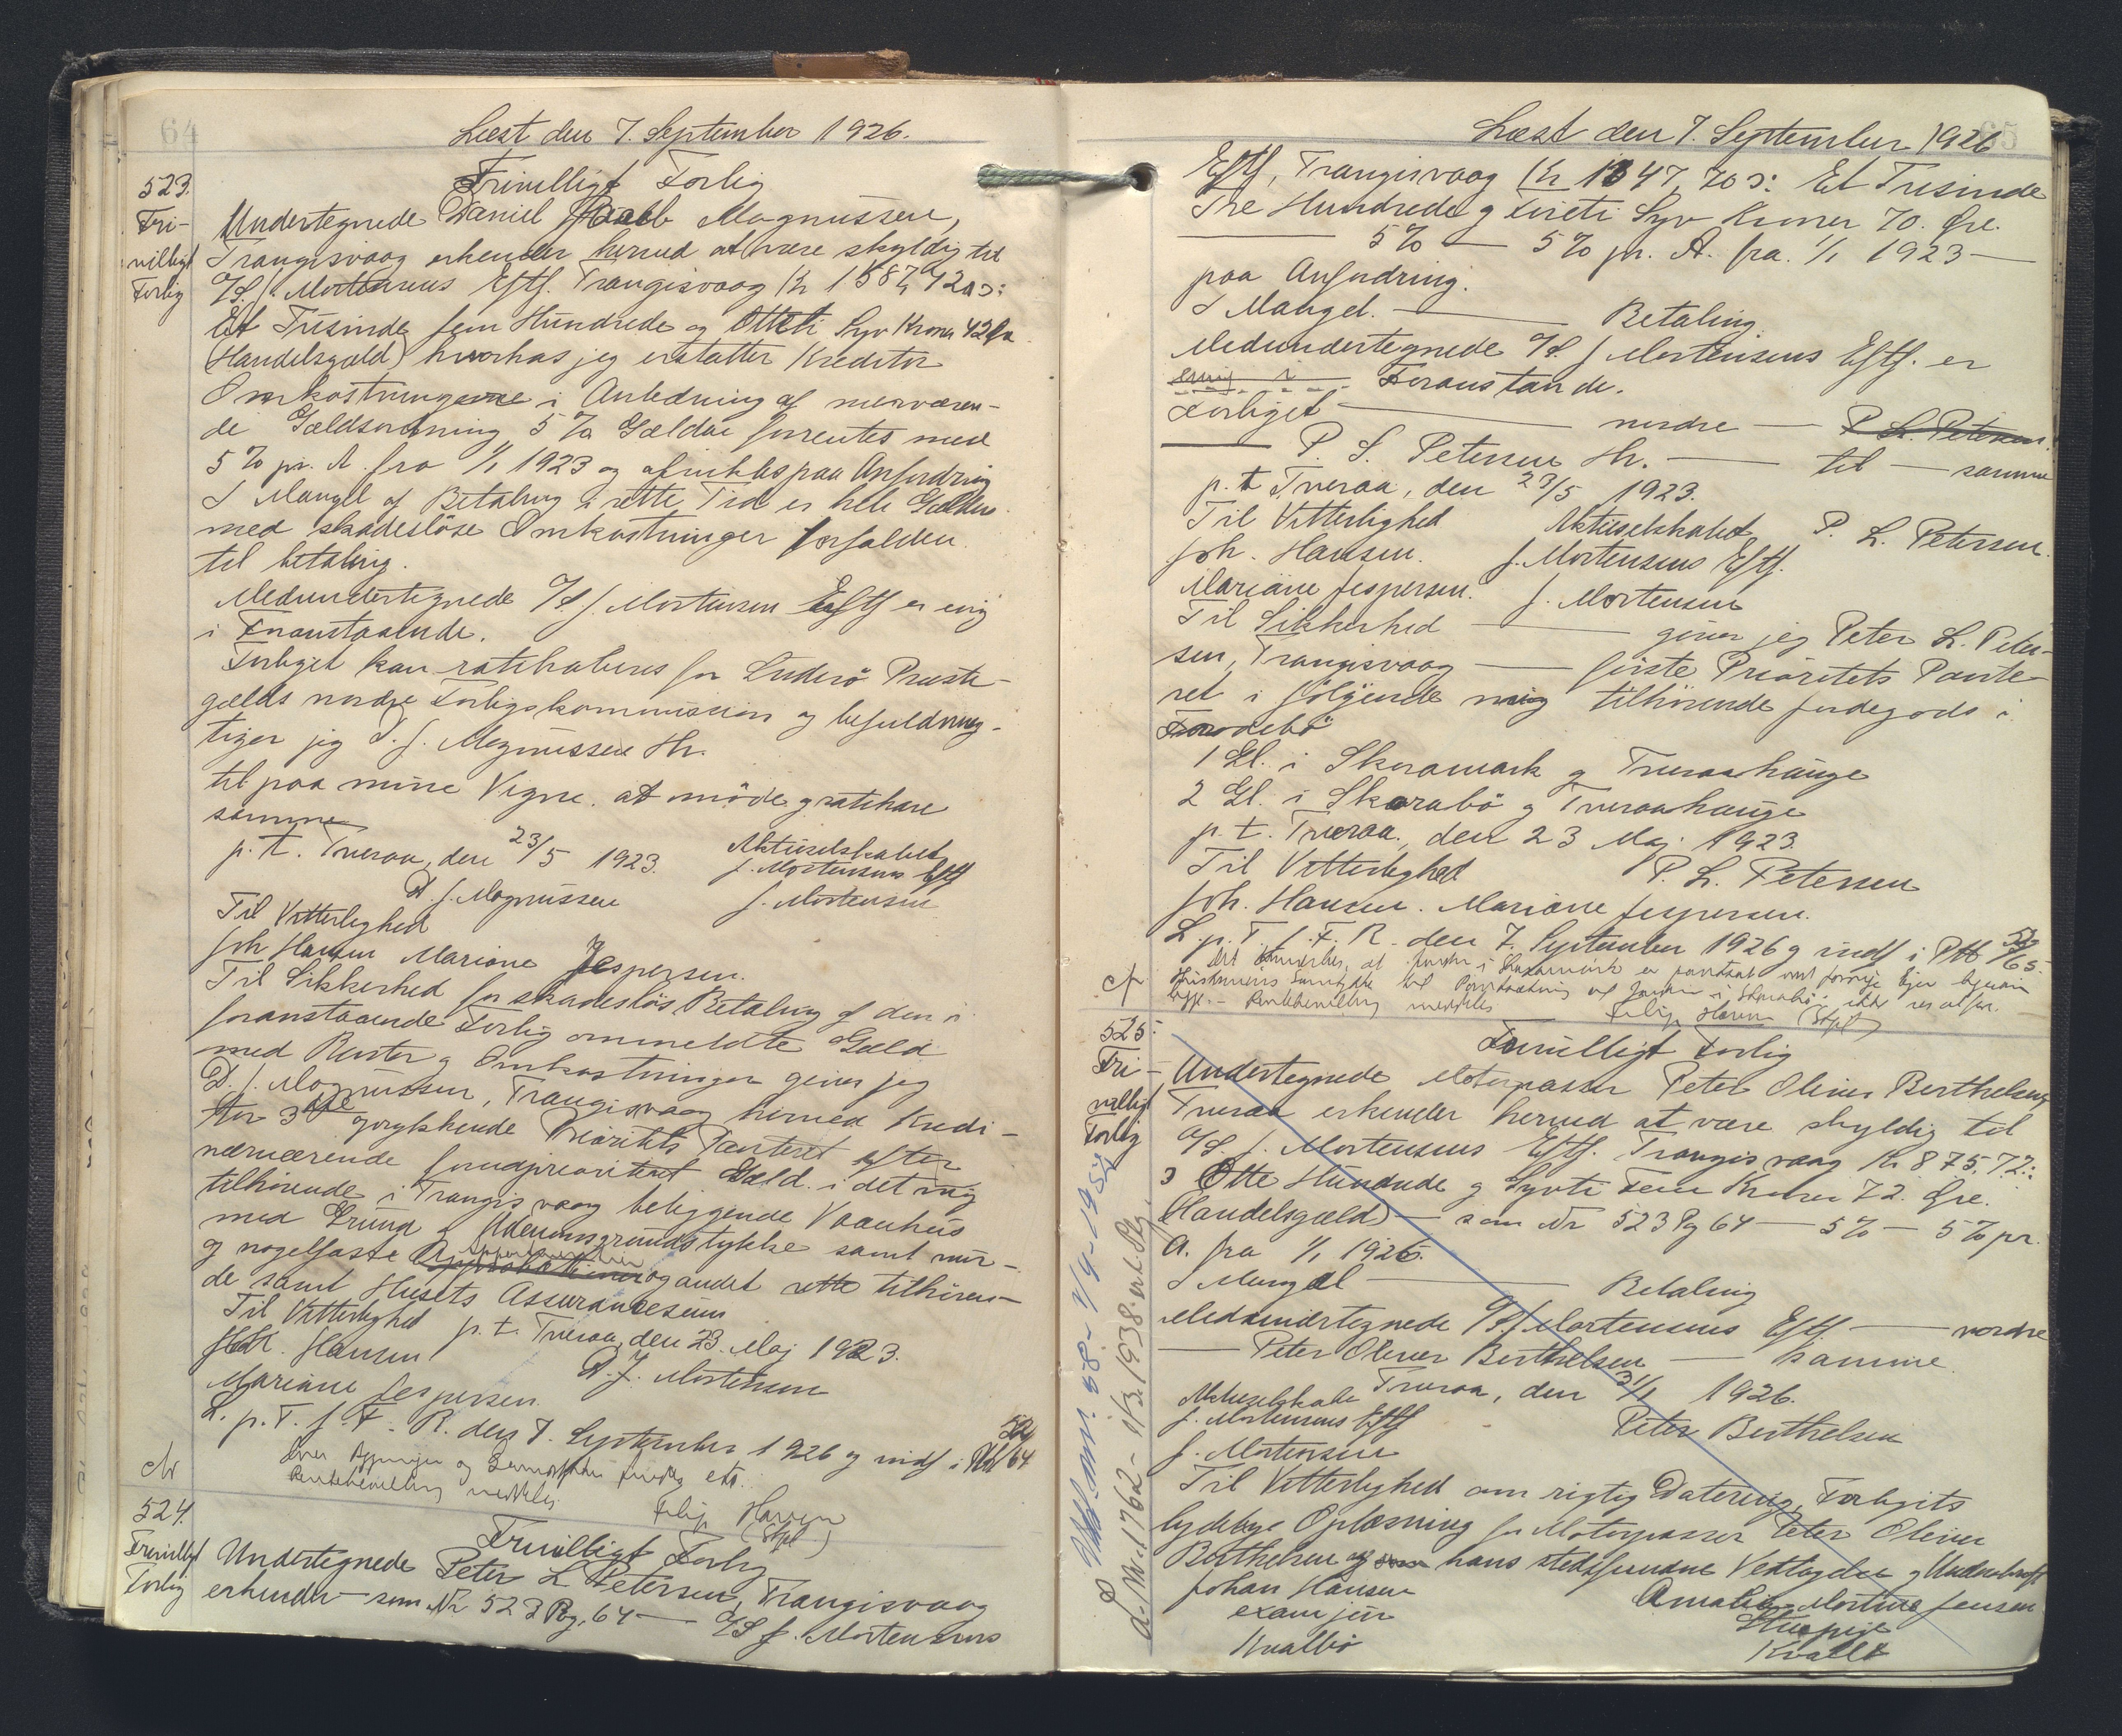 64
Læst den 7. September 1926.
523.
Fri-
villigt
Forlig
Frivilligt Forlig
Undertegnede Daniel Jacob Magnussen,
Trangisvaag erkender herved at være skyldig til
A/S. J. Mortensens Eftf. Trangisvaag Kr 1587,42 ɔ:
Et Tusinde fem Hundrede og Otteti Syv Kroner 42 Øre
(Handelsgæld) hvorhos jeg erstatter Kreditor
Omkostningerne i Anledning af nærværen-
de Gældsordning 5 % Gælden forrentes med
5 % pr. A. fra 1/1 1923 og afbetales paa Anfordring
I Mangel af Betaling i rette Tid er hele Gælden
med skadesløse Omkostninger forfalden
til betaling.
Medundertegnede A/S J. Mortensen Eftf er enig
i Foranstaaende.
Forliget kan ratihaberes for Suderø Præste-
gælds nordre Forligskommission og befuldmæg-
tiger jeg D. J. Magnussen Hr.
til paa mine Vegne at møde og ratihabere
samme
p. t. Tveraa, den 23/5 1923.
Aktieselskabet
J. Mortensens Eftf
D. J. Magnussen
J. Mortensen
Til Vitterlighed
Joh Hansen Mariane Jespersen.
Til Sikkerhed for skadesløs Betaling af den i
foranstaaende Forlig ommeldte Gæld
med Renter og Omkostninger giver jeg
D. J. Magnussen, Trangisvaag herved Kredi-
tor 3die oprykkende Prioritets Panteret efter
nærværende forudprioriteret Gæld i det mig
tilhørende i Trangisvaag beliggende Vaanhus
med Grund og Udenomsgrundstykke samt mur-
og nagelfaste Appertinentier og andet rette tilhøren-
de samt Husets Assurancesum
Til Vitterlighed p. t. Tveraa, den 23. Maj 1923.
Joh. Hansen
D. J. Mortensen
Mariane Jespersen
L. p. T. f. F. R. den 7. September 1926 og indf i Ptb 52/64
Rentebevilling meddeles
Filip Hansen
(Stpl)
524.
Frivilligt
Forlig
Frivilligt Forlig
Undertegnede Peter L Petersen, Trangisvaag
erkender — som Nr 523 Pag. 64 — A/S J. Mortensens
65
Læst den 7. September 1926
Eftf, Trangisvaag Kr 1347,70 ɔ: Et Tusinde
Tre Hundrede og Fireti Syv Kroner 70. Øre.
— 5% — 5 % pr. A. fra. 1/1 1923 —
paa Anfordring.
I Mangel. — Betaling
Medundertegnede A/S. J Mortensens Eftf. er
enig i Foranstaaende.
Forliget — nordre — P. L. Petersen
— P. L. Petersen Hr. — til — samme
p. t Tveraa, den 23/5 1923.
Til Vitterlighed Aktieselskabet P. L. Petersen.
Joh. Hansen. J. Mortensens Eftf.
Mariane Jespersen. J. Mortensen
Til Sikkerhed — giver jeg Peter L. Peter-
sen, Trangisvaag — første Prioritets Pante-
ret i følgende mig tilhørende Jordegods i
Frodebø
1 Gl. i Skoramark og Tveraahauge
2 Gl. i Skarabø og Tveraahauge
p. t. Tveraa, den 23 Maj 1923.
Til Vitterlighed P. L. Petersen
Joh. Hansen. Mariane Jespersen.
L. p. T. f. F. R. den 7. September 1926 og indf i Ptb 52/65.
Rentebevilling meddeles
Filip Hansen (Stpl)
525.
Fri-
villigt
Forlig
Frivilligt Forlig
Undertegnede Motorpasser Peter Oliver Berthelsen,
Tveraa erkender herved at være skyldig til
A/S. J. Mortensens Eftf. Trangisvaag Kr 875.72:
ɔ Otte Hundrede og Syvti Fem Kroner 72. Øre.
(Handelsgæld) — som Nr 523 Pg 64 — 5% — 5 % pr.
A. fra 1/1 1926.
I Mangel — Betaling
Medundertegnede A/S J Mortensens Eftf. — nordre
— Peter Oliver Berthelsen — samme.
Tveraa, den 31/1 1926.
Aktieselskabet
J. Mortensens Eftf
Peter Berthelsen
J. Mortensen
Til Vitterlighed om rigtig Datering, Forligets
lydelige Oplæsning for Motorpasser Peter Oliver
Berthelsen og hans stedfundne Vedtagelse og Underskrift
Johan Hansen
Amalia Mortine Jensen
exam jur
Stuepige
Kvalbø